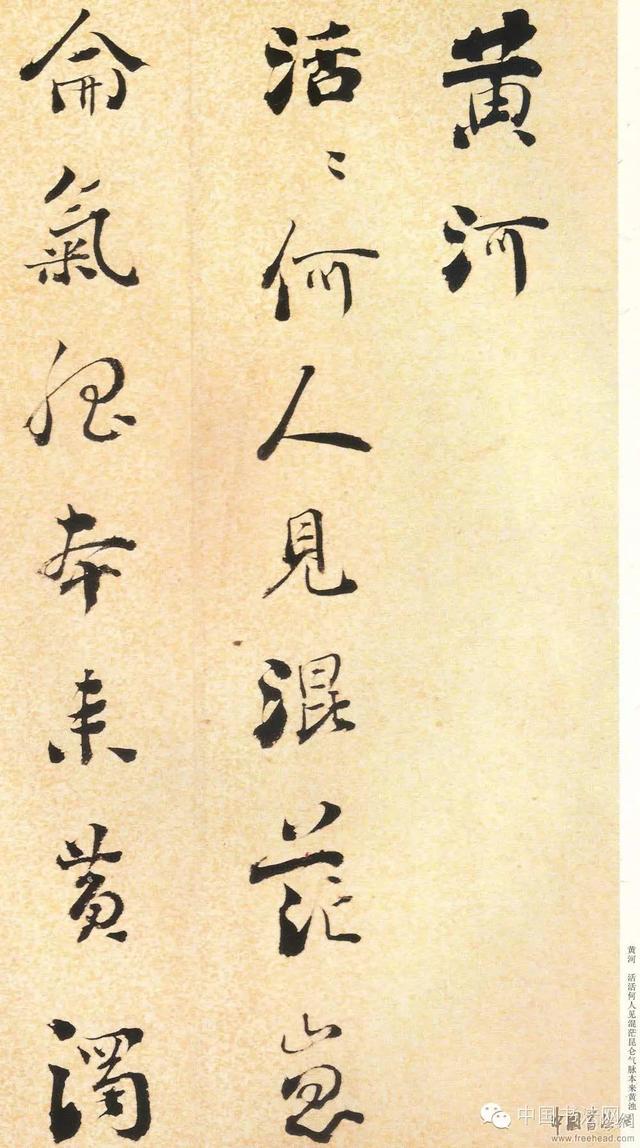 黄河
活〻何人見混茫崑
侖氣脉本來黄濁
黄河 活活何人见混茫昆仑气脉本来黄浊
中国书法网
中国书法网
www.freehead.com